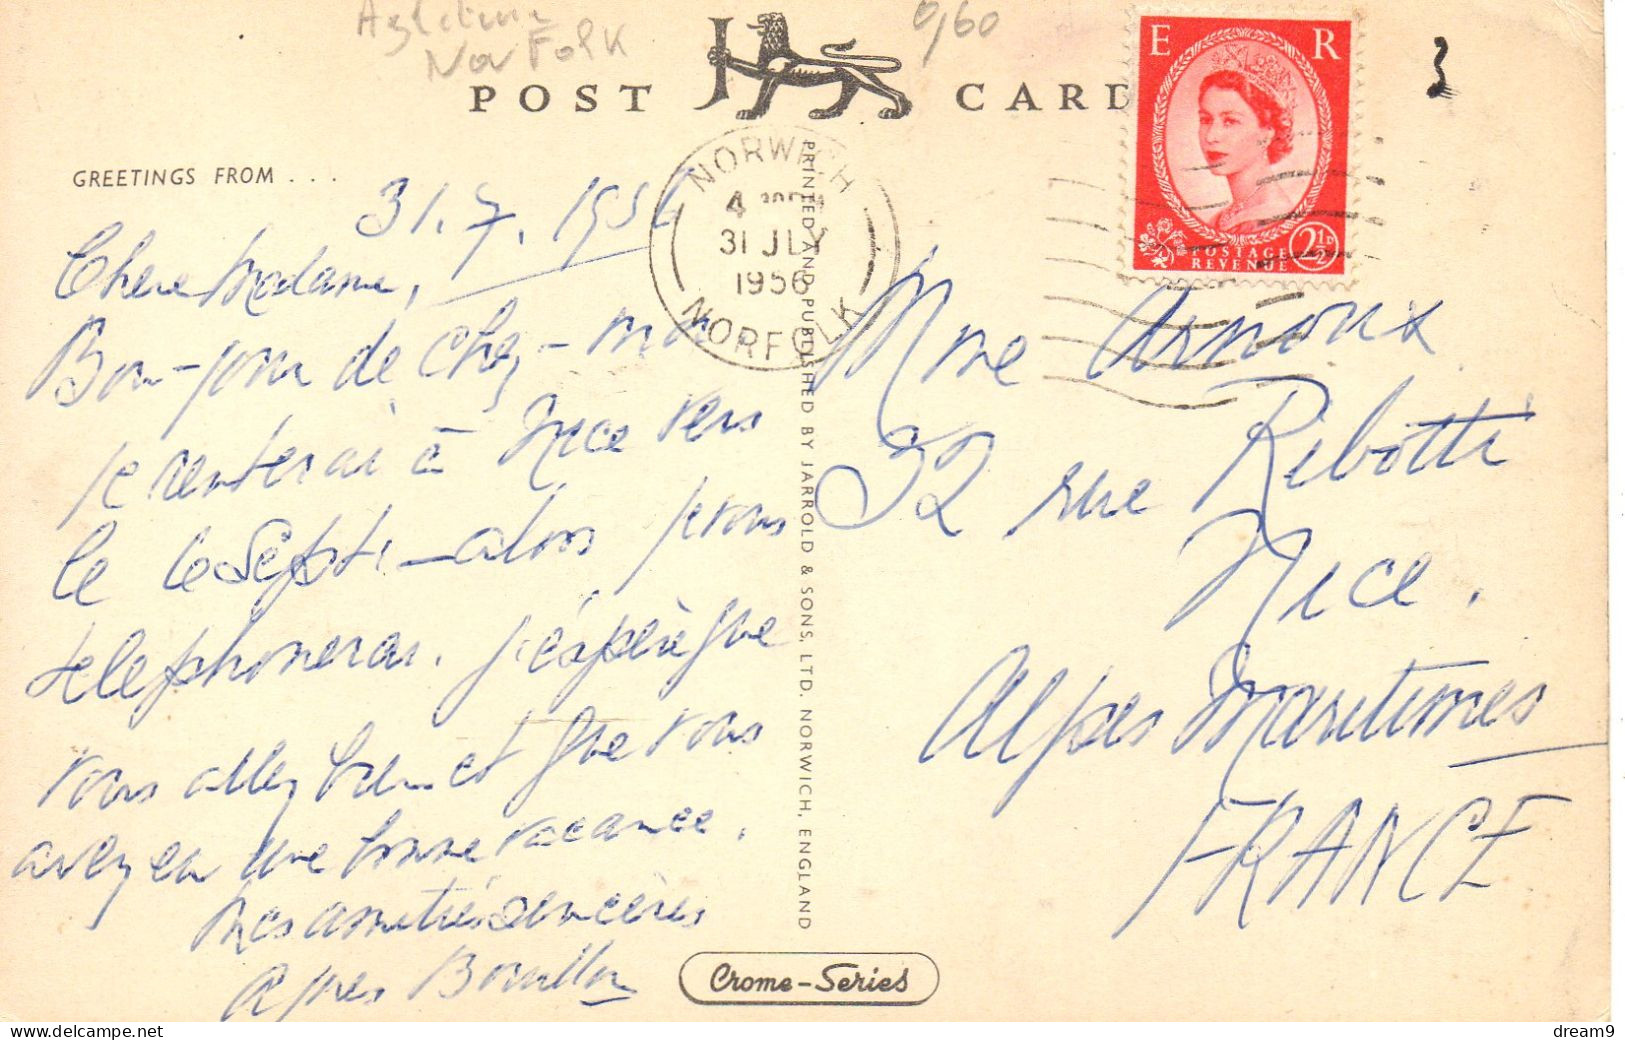 Norfolk
0,60
POST CARD
E R
POSTAGE
REVENUE
2½D
3
GREETINGS FROM . . .
31.7.1956
Chère Madame,
Bon-jour de chez-moi
je renterai à Nice vers
le 6 Sept. - alors je vous
telephonerai. j'éspère que
vous allez bien et que vous
avez eu une bonne vacance.
Mes amitiés sencères
Agnes Bouillon
NORWICH
4
31 JLY
1956
NORFOLK
PRINTED AND PUBLISHED BY JARROLD & SONS, LTD. NORWICH, ENGLAND
Mme Arnoux
32 rue Ribotti
Nice.
Alpes Maritimes
FRANCE
Crome-Series
dream9